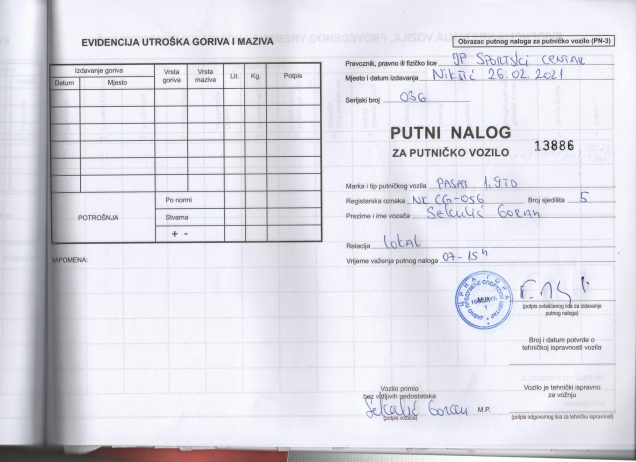 EVIDENCIJA UTROŠKA GORIVA I MAZIVA
Izdavanje goriva
Datum Mjesto Vrsta goriva Vrsta maziva Lit. Kg. Potpis
POTROŠNJA
Po normi
Stvarna
+ -
NAPOMENA:
Obrazac putnog naloga za putničko vozilo (PN-3)
Prevoznik, pravno ili fizičko lice JP Sportski centar
Mjesto i datum izdavanja Nikšić 26.02.2021
Serijski broj 036
PUTNI NALOG
ZA PUTNIČKO VOZILO 13886
Marka i tip putničkog vozila PASAT
Registarska oznaka NK CG-056 Broj sjedišta 5
Prezime i ime vozača Goran
Relacija Lokal
Vrijeme važenja putnog naloga 07-15 h
M.P.
(potpis ovlašćenog lica za izdavanje
putnog naloga)
Broj i datum potvrde o
tehničkoj ispravnosti vozila
Vozilo primio
bez vidljivih nedostataka
Goran M.P.
(potpis vozača)
Vozilo je tehnički ispravno
za vožnju
(potpis odgovornog lica za tehničku ispravnost)